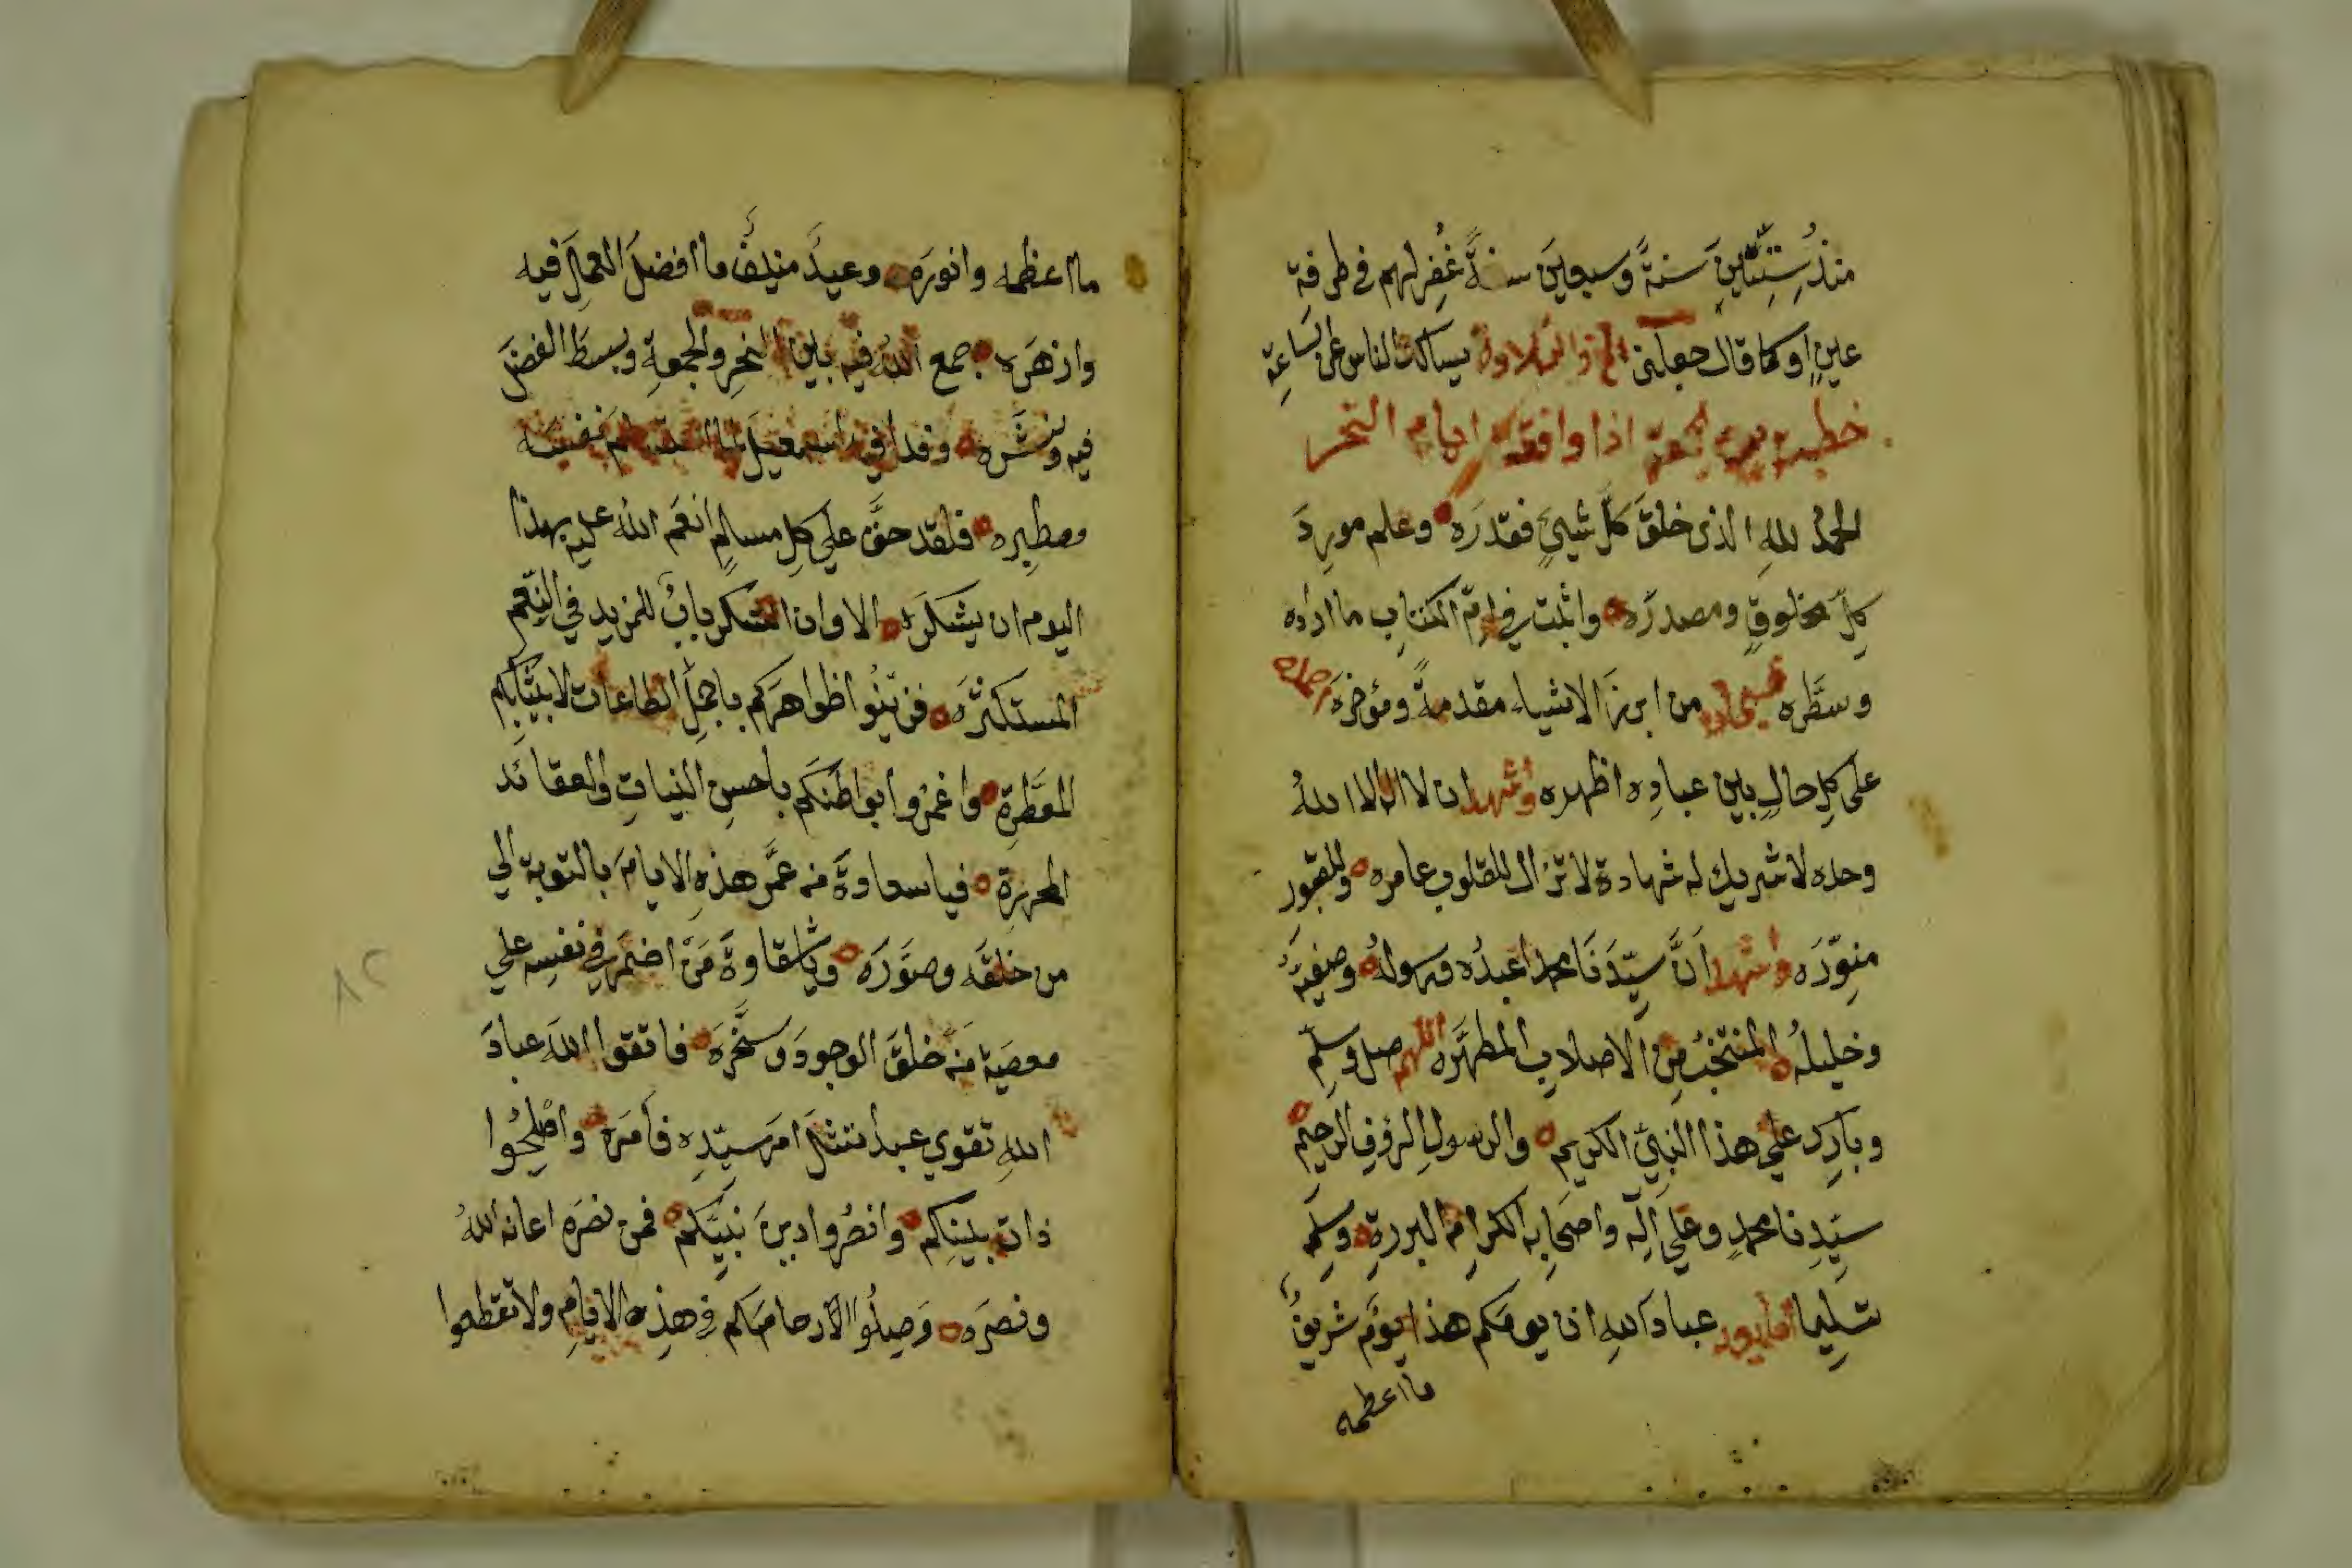 منذُ سِتِّينَ سنةً وسبعينَ سنةً غُفِر لهم في طرفة
عينٍ او كما قال جعلني الخ والتلاوة يسالك الناس عن الساعةِ
خطبة يوم الجمعة اذا وافقة ايام النحر
الحمدُ للهِ الذى خلقَ كلَّ شيئٍ فقدرَه وعلم موردَ
كلِّ مخلوقٍ ومصدرَه واثبت في امِّ الكتابِ ما اراده
وسطَّره من ابرزَ الاشياء مقدمةً ومؤخرَه
على كلِ حالٍ بين عبادِه اظهره واشهد ان لا اله الا اللهُ
وحده لا شريك له شهادة لا تزال للقلوب عامره وللقبور
منوّرَه واشهد انَّ سيّدَنَا محمدا عبدُه ورسولهُ وصفيَّه
وخليلهُ المنتخبُ مِن الاصلابِ المطهَّره اللهم صل وسلم
وبارك على هذا النبيِّ الكريم والرسولِ الرؤفِ الرحيم
سيّدِنا محمدٍ وعلى آلِه واصحابِه الكرامِ البررةِ وسلم
تسليما عبادَ اللهِ ان يومَكم هذا يومٌ شريفٌ
ما اعظمه
ما اعظمه وانورَه وعيدٌ منيفٌ ما افضلَ العملَ فيه
وازهَره جمع اللهُ فيه بين النحرِ والجمعةِ وبسطَ الفضلَ
فيه ونشَره وفدا فيه اسمعيلَ نفيسَه
ومطيره فلقد حقَّ على كلِ مسلمٍ انعَم اللهُ عليه بهذا
اليوم ان يشكرَه الا وان الشكر بابُ المزيدِ في النِّعم
المستكثرَه فزيّنُوا ظواهرَكم باجملِ الطاعات لابيَّتكم
المعَطَّرةِ واغمزوا بواطنَكم باحسنِ النياتِ والعقائد
المحررةِ فيا سعادةَ من عمَّر هذهِ الايامَ بالتوبة الى
من خلقَه وصوّرَه ويا شقاوةَ مَنْ اضمَر في نفسِه على
معصية مَن خلقَ الوجودَ وسخَّرَه فاتقوا اللهَ عبادَ
اللهِ تقوي عبدٍ امتثلَ امرَ سيّدِه فامَره واصْلِحُوا
ذات بينِكم وانصُروا دينَ نبيِّكم فمن نصرَه اعانه اللهُ
ونصرَه وَصِلُوا الارحامَكم في هذه الايامِ ولا تقطعوا
٨٢